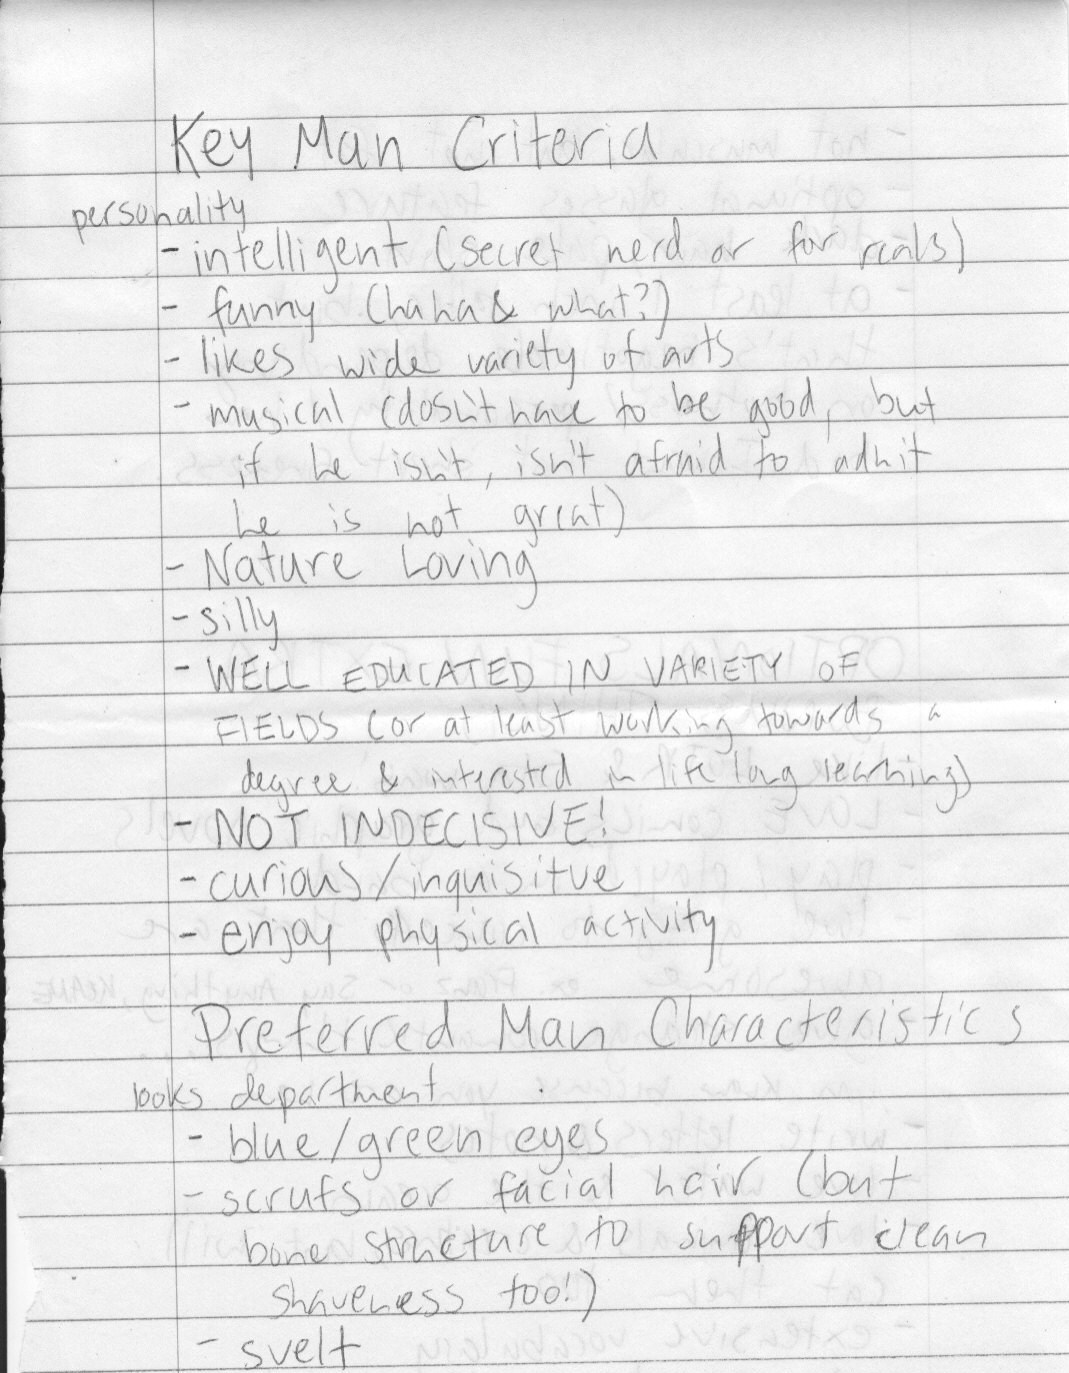 Key Man Criteria
personality
- intelligent (secret nerd or for reals)
- funny (haha & what?)
- likes wide variety of arts
- musical (dosn't have to be good, but
if he isn't, isn't afraid to admit
he is not great)
- Nature Loving
- silly
- WELL EDUCATED IN VARIETY OF
FIELDS (or at least working towards a
degree & interested in life long learning)
- NOT INDECISIVE!
- curious/inquisitve
- enjoy physical activity
Preferred Man Characteristics
looks department
- blue/green eyes
- scrufs or facial hair (but
bone structure to support clean
shaveness too!)
- svelt